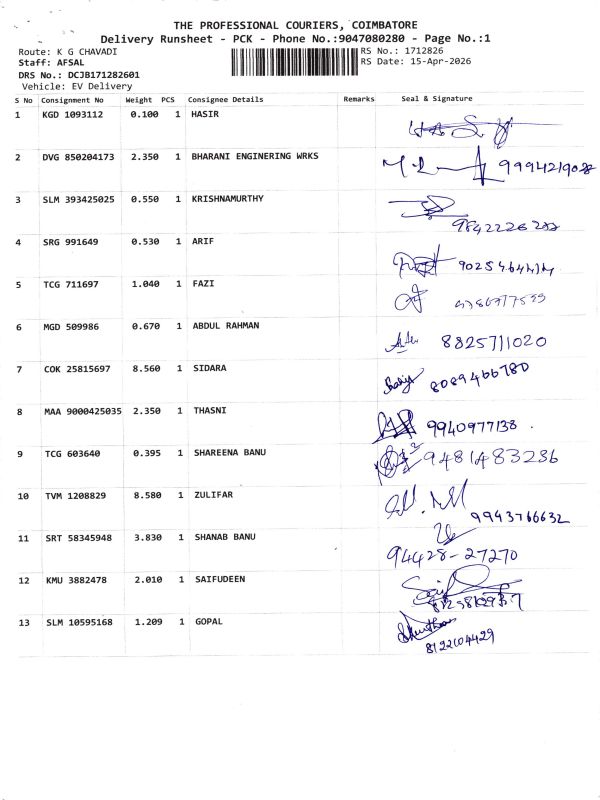 THE PROFESSIONAL COURIERS, COIMBATORE
Delivery Runsheet - PCK - Phone No.:9047080280 - Page No.:1
Route: K G CHAVADI RS No.: 1712826
Staff: AFSAL RS Date: 15-Apr-2026
DRS No.: DCJB171282601
Vehicle: EV Delivery
S No Consignment No Weight PCS Consignee Details Remarks Seal & Signature
1 KGD 1093112 0.100 1 HASIR
2 DVG 850204173 2.350 1 BHARANI ENGINERING WRKS 9994219028
3 SLM 393425025 0.550 1 KRISHNAMURTHY
4 SRG 991649 0.530 1 ARIF
5 TCG 711697 1.040 1 FAZI
6 MGD 509986 0.670 1 ABDUL RAHMAN 8825711020
7 COK 25815697 8.560 1 SIDARA 8089466780
8 MAA 9000425035 2.350 1 THASNI 9940977138
9 TCG 603640 0.395 1 SHAREENA BANU 9481483236
10 TVM 1208829 8.580 1 ZULIFAR 9943766632
11 SRT 58345948 3.830 1 SHANAB BANU 94428-27270
12 KMU 3882478 2.010 1 SAIFUDEEN
13 SLM 10595168 1.209 1 GOPAL 8122104429